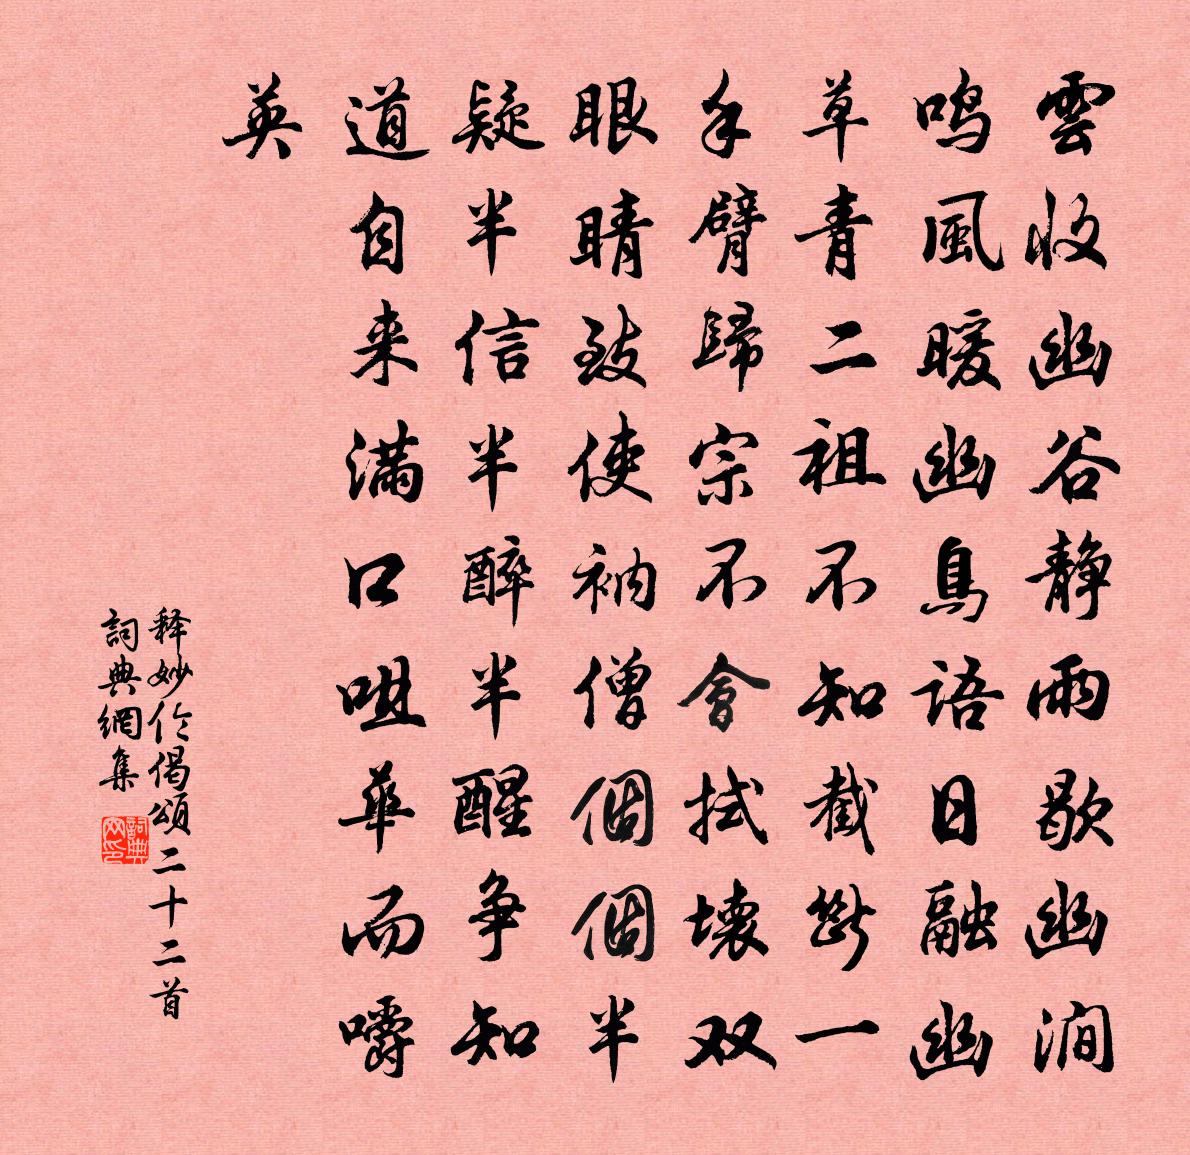 雲收幽谷静雨歇幽澗
鳴風暖幽鳥語日融幽
草青二祖不知截斷一
手臂歸宗不會拭壞双
眼睛致使衲僧個個半
疑半信半醉半醒争知
道自来满口咀華而嚼
英
释妙伦偈頌二十二首
詞典網集
詞典网印